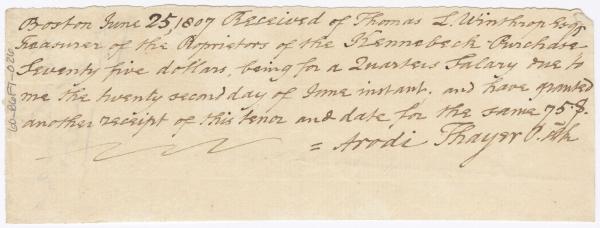 Boston June 25, 1807 Received of Thomas L. Winthrop Esqr
Treasurer of the Proprietors of the Kennebeck Purchase
Seventy five dollars, being for a Quarters Salary due to
me the twenty second day of June instant. and have granted
another receipt of this tenor and date for the same 75 $.
= Arodi Thayer P. Clk